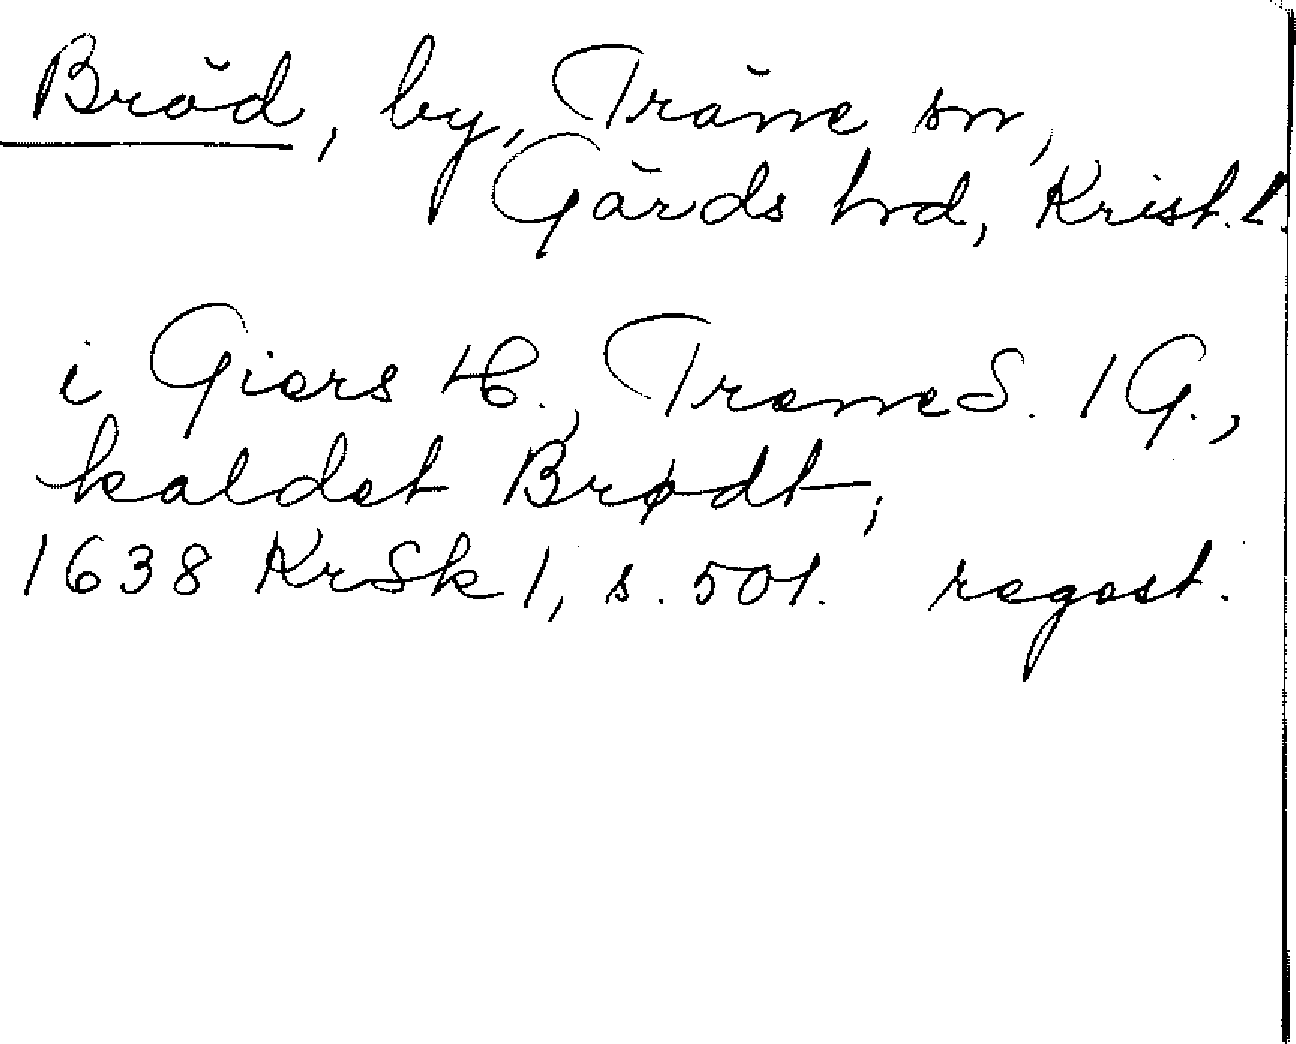 Bröd, by, Träne sn,
Gärds hrd, Krist. l.
i Giers H., TraneS. 1 G.,
kaldet Brødt;
1638 KrSk 1, s. 501. regest.